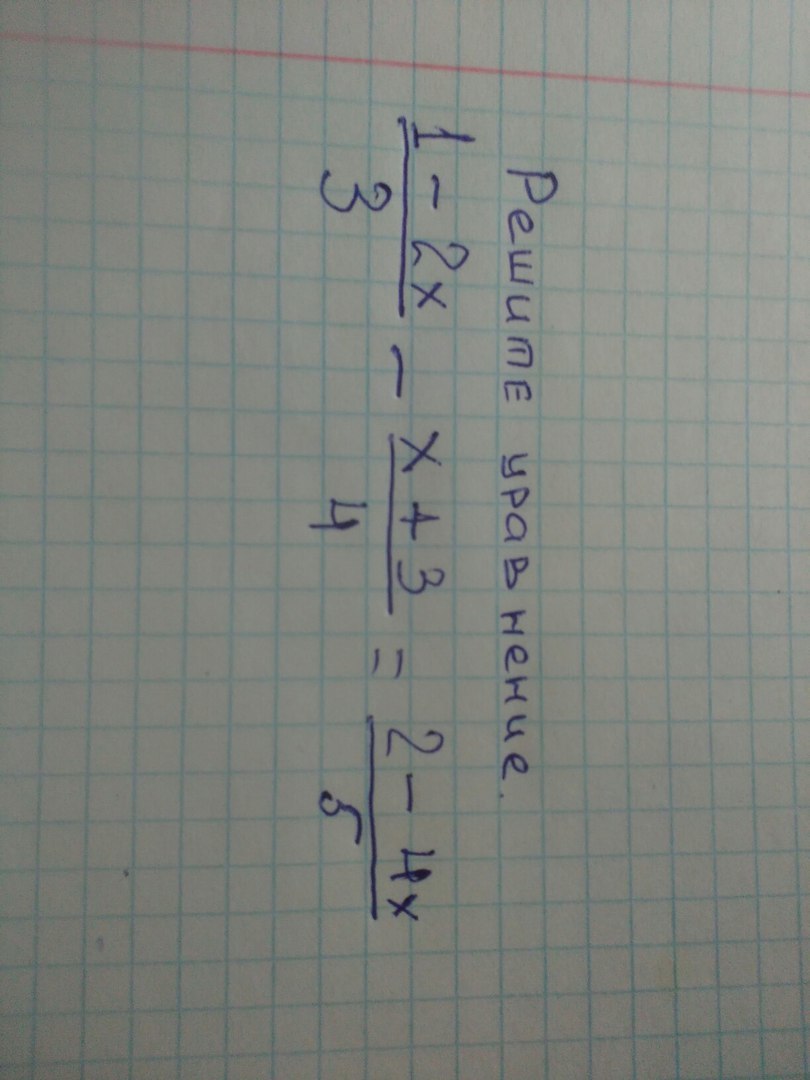 Решите уравнение.
1 - 2x / 3 - x + 3 / 4 = 2 - 4x / 5